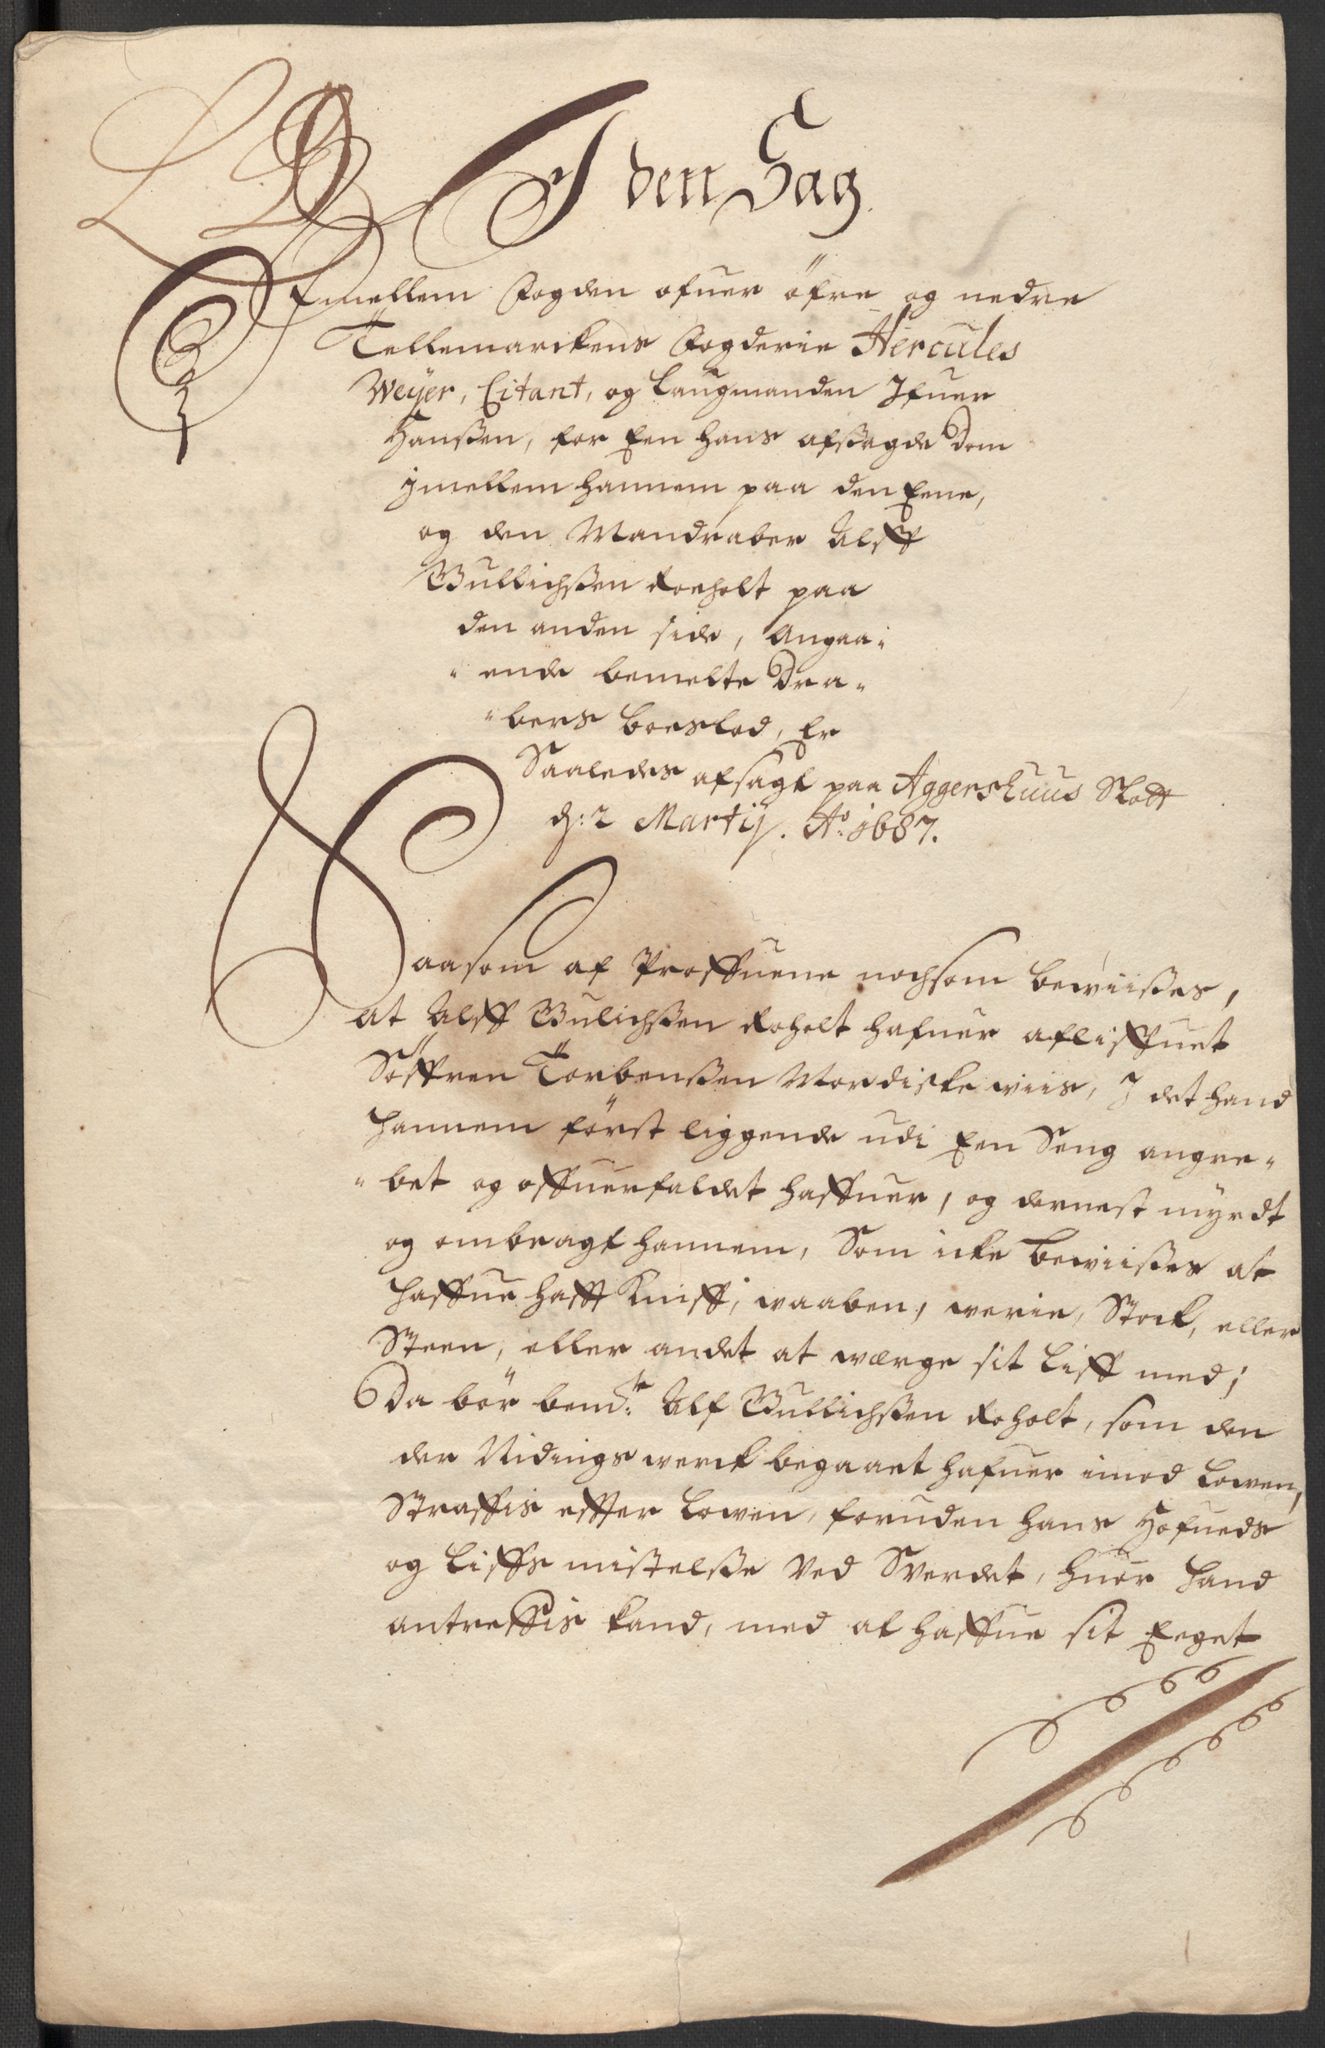 I den Sag
Emellem Fogden ofuer öfre og nedre
Tellemarckens Fogderie Hercules
Weyer, Citant, og Laugmanden Ifuer
Hanßen, for Een hans afsagde Dom
ymellem hannem paa den Eene,
og den Mandraber Alff
Gullichßen Roeholt paa
den anden side, Angaa-
-ende bemelte Dra-
-bers boeslod, Er
Saaledes afsagt paa Aggershuus Slott
d: 2 Martij. Ao 1687.
Saasom af Proffuene nochsom bewiißes,
at Alff Gulichßen Roholt hafuer afliffuet
Söffren Törbenßen Mordiske wiis, I det hand
hannem först liggende udi Een Seng angre-
-bet og offuerfaldet haffuer, og dernest myrdt
og ombragt hannem, Som icke bewiißes at
haffue hafft Kniff, waaben, werie, Stock, eller
Steen, eller andet at wærge sit Liff med;
Da bör bemte Alf Gullichßen Roholt, som den
der Nidings werck begaaet hafuer imod Lowen,
Straffis effter Lowen, foruden hans Hofueds
og Liffs mistelße Ved Swerdet, huor hand
antreffis kand, med at haffue sit Eeget